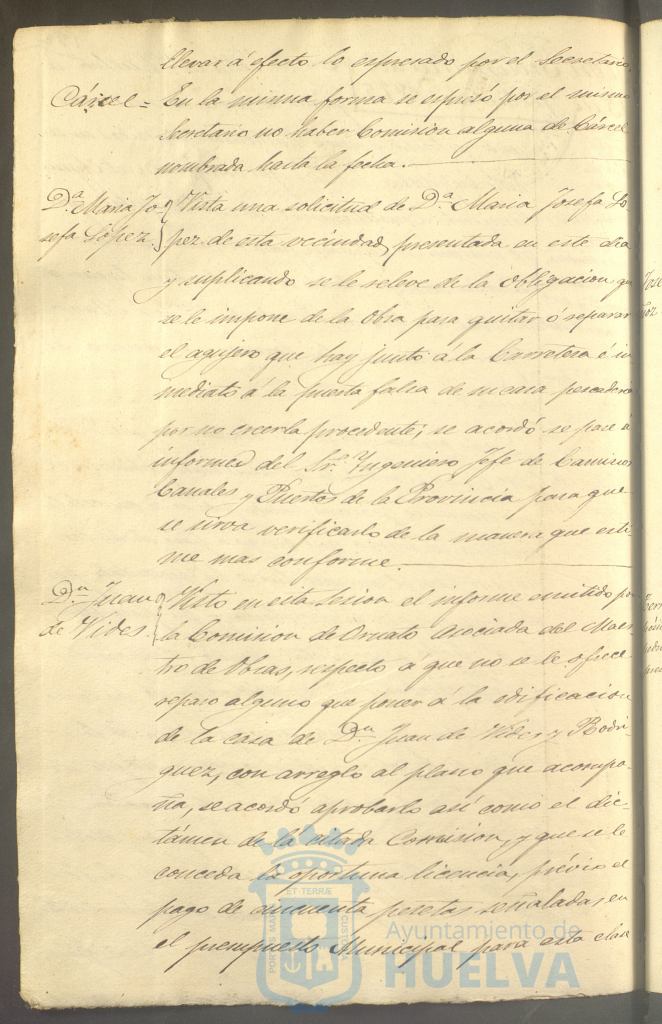 llevar á efecto lo espresado por el Secretario.
Cárcel = En la misma forma se espresó por el mismo
Secretario no haber Comision alguna de Cárcel
nombrada hasta la fecha.
Dª Maria Jo- Vista una solicitud de Dª Maria Josefa Lo
sefa López. pez de esta vecindad, presentada en este dia
y suplicando se le releve de la obligacion que
se le impone de la obra para quitar ó separar
el agujero que hay junto á la Carretera é in
mediato á la puerta falsa de su casa pescaderia
por no creerla procedente; se acordó se pase á
informe del Sr. Ingeniero Jefe de Caminos
Canales y Puertos de la Provincia para que
se sirva verificarlo de la manera que esti-
me mas conforme.
Dn Juan Visto en esta Sesion el informe emitido por
de Vides. la Comision de Ornato asociada del Maes
tro de Obras, respecto á que no se le ofrece
reparo alguno que poner á la edificacion
de la casa de Dn Juan de Vides y Rodri-
guez, con arreglo al plano que acompa-
ña, se acordó aprobarlo así como el dic-
támen de la citada Comision, y que se le
conceda la oportuna licencia, prévio el
pago de cincuenta pesetas señaladas en
el presupuesto Municipal para esta clase
PORTUS MARIS ET TERRÆ CUSTODIA
Ayuntamiento de
HUELVA